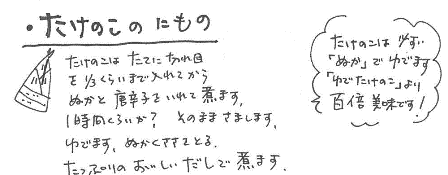 ・たけのこのにもの
たけのこは たてに 切れ目
を 1/3くらいまで入れてから
ぬかと 唐辛子をいれて煮ます。
1時間くらいか? そのまま さまします。
ゆでます。ぬかくささをとる。
たっぷりの おいしい だしで 煮ます。
たけのこは
「ぬか」で ゆでます
「ゆでたけのこ」より
百倍 美味です!